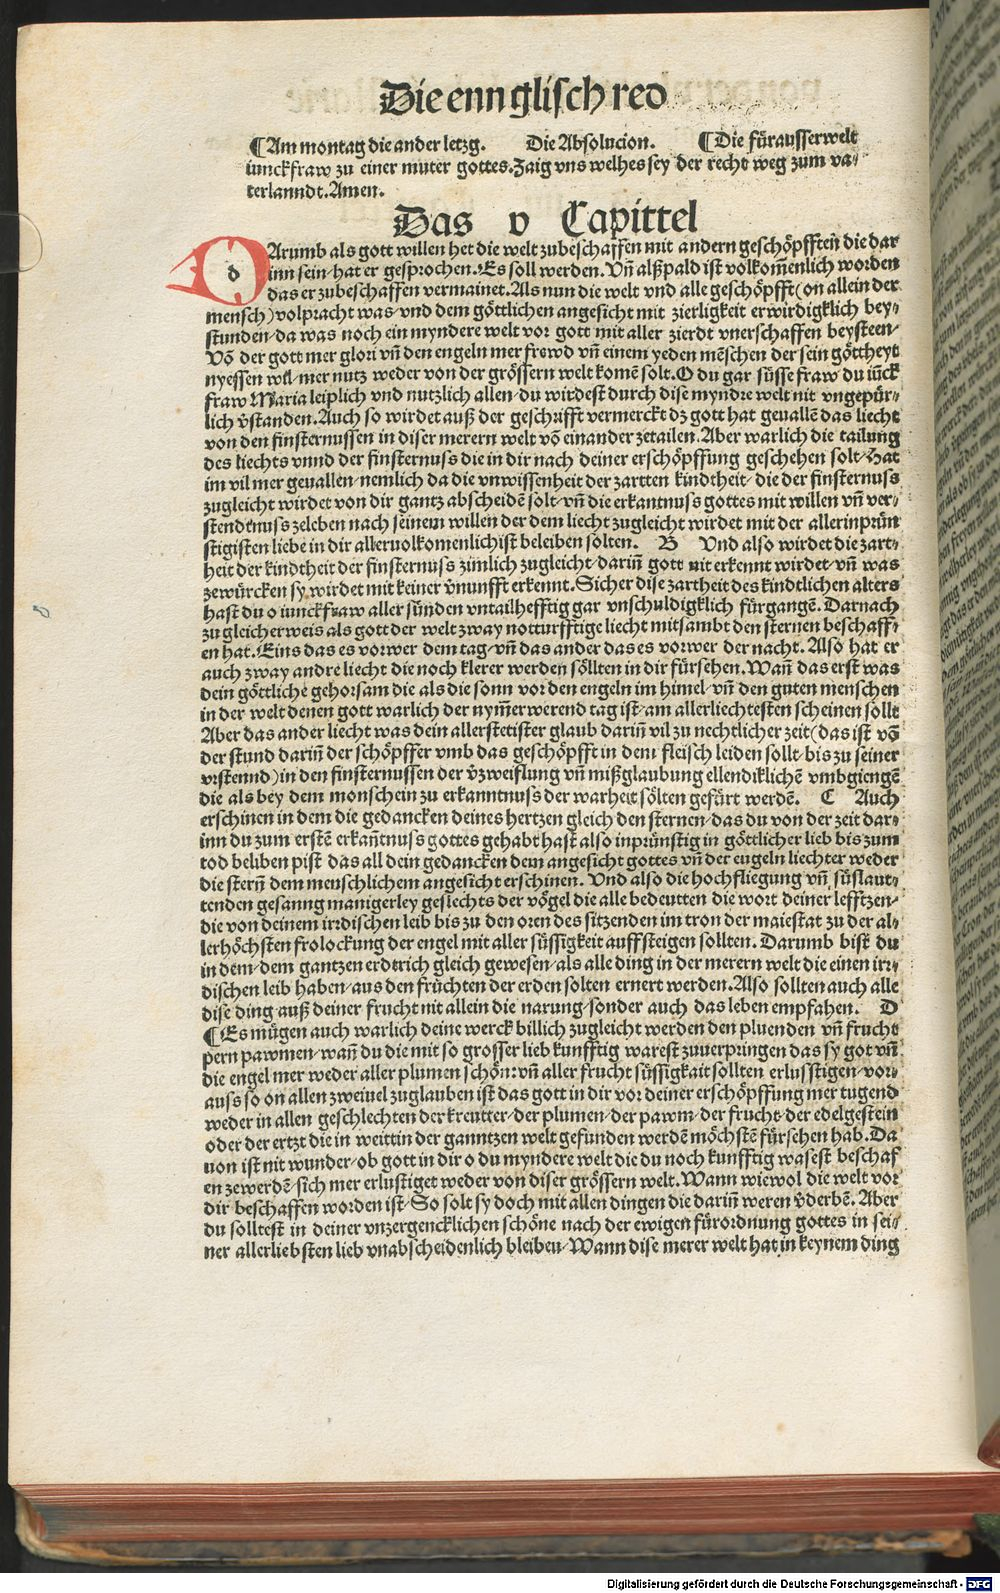 Die ennglisch red
¶Am montag die ander letzg. Die Absolucion. ¶Die fürausserwelt
iunckfraw zu einer muter gottes. Zaig vns welhes sey der recht weg zum va⸗
terlanndt. Amen.
Das v Capittel
d
DArumb als gott willen het die welt zubeschaffen mit andern geschöpfften die dar
inn sein/hat er gesprochen. Es soll werden. Vñ alßpald ist volkom̃enlich worden
das er zubeschaffen vermainet. Als nun die welt vnd alle geschöpfft (on allein der
mensch) volpracht was/vnd dem göttlichen angesicht mit zierligkeit erwirdigklich bey⸗
stunden/da was noch ein myndere welt vor gott mit aller zierdt vnerschaffen beysteen/
Võ der gott mer glori vñ den engeln mer frewd vñ einem yeden mẽschen der sein göttheyt
nyessen wil/mer nutz weder von der grössern welt komẽ solt. O du gar süsse fraw du iũck
fraw Maria leiplich vnd nutzlich allen/du wirdest durch dise myndre welt nit vngepür⸗
lich v̈standen. Auch so wirdet auß der geschrifft vermerckt dz gott hat geuallẽ das liecht
von den finsternussen in diser merern welt võ einander zetailen. Aber warlich die tailung
des liechts vnnd der finsternuss die in dir nach deiner erschöpffung geschehen solt/Hat
im vil mer geuallen/nemlich da die vnwissenheit der zartten kindtheit/die der finsternuss
zugleicht wirdet von dir gantz abscheidẽ solt/vñ die erkantnuss gottes mit willen vñ ver⸗
stendtnuss zeleben nach seinem willen der dem liecht zugleicht wirdet mit der allerinprün
stigisten liebe in dir allervolkomenlichist beleiben solten. B Vnd also wirdet die zart⸗
heit der kindtheit der finsternuss zimlich zugleicht/dariñ gott nit erkennt wirdet/vñ was
zewürcken sy wirdet mit keiner v̈nunfft erkennt. Sicher dise zartheit des kindtlichen alters
hast du o iunckfraw aller sünden vntailhefftig gar vnschuldigklich fürgangẽ. Darnach
zu gleicher weis als gott der welt zway notturfftige liecht mitsambt den sternen beschaff⸗
en hat. Eins das es vorwer dem tag/vñ das ander das es vorwer der nacht. Also hat er
auch zway andre liecht die noch klerer werden söllten in dir fürsehen. Wañ das erst was
dein göttliche gehorsam die als die sonn vor den engeln im himel/vñ den guten menschen
in der welt denen gott warlich der nym̃erwerend tag ist/am allerliechtesten scheinen sollt
Aber das ander liecht was dein allerstetister glaub dariñ vil zu nechtlicher zeit (das ist võ
der stund dariñ der schöpffer vmb das geschöpfft in dem fleisch leiden sollt/bis zu seiner
vrstennd) in den finsternussen der v̈zweiflung vñ mißglaubung ellendiklichẽ vmbgiengẽ
die als bey dem monschein zu erkanntnuss der warheit sölten gefürt werdẽ. C Auch
erschinen in dem die gedancken deines hertzen gleich den sternen/das du von der zeit dar⸗
inn du zum erstẽ erkañtnuss gottes gehabt hast also inprünstig in göttlicher lieb bis zum
tod beliben pist das all dein gedancken dem angesicht gottes vñ der engeln liechter weder
die sterñ dem menschlichem angesicht erschinen. Vnd also die hochfliegung vñ süslaut⸗
tenden gesanng manigerley geslechts der vögel die alle bedeutten die wort deiner lefftzen/
die von deinem irrdischen leib bis zu den oren des sitzenden im tron der maiestat zu der al⸗
lerhöchsten frolockung der engel mit aller süssigkeit auffsteigen sollten. Darumb bist du
in dem/dem gantzen erdtrich gleich gewesen/als alle ding in der merern welt die einen irr⸗
dischen leib haben/aus den früchten der erden solten ernert werden. Also sollten auch alle
dise ding auß deiner frucht nit allein die narung/sonder auch das leben empfahen. D
¶Es mügen auch warlich deine werck billich zugleicht werden den pluenden vñ frucht
pern pawmen/wañ du die mit so grosser lieb kunfftig warest zuuerpringen das sy got vñ
die engel mer weder aller plumen schön: vñ aller frucht süssigkait sollten erlusstigen/vor⸗
auss so on allen zweiuel zuglauben ist das gott in dir vor deiner erschöpffung mer tugend
weder in allen geschlechten der kreutter/der plumen/der pawm/der frucht/der edelgestein
oder der ertzt die in weittin der ganntzen welt gefunden werdẽ möchstẽ fürsehen hab. Da
uon ist nit wunder/ob gott in dir o du myndere welt die du noch kunfftig wasest beschaf
en zewerdẽ/sich mer erlustiget weder von diser grössern welt. Wann wiewol die welt vor
dir beschaffen worden ist/So solt sy doch mit allen dingen die dariñ weren v̈derbẽ. Aber
du solltest in deiner vnzergencklichen schöne nach der ewigen fürordnung gottes in sei⸗
ner allerliebsten lieb vnabscheidenlich bleiben/Wann dise merer welt hat in keynem ding
Digitalisierung gefördert durch die Deutsche Forschungsgemeinschaft - DFG